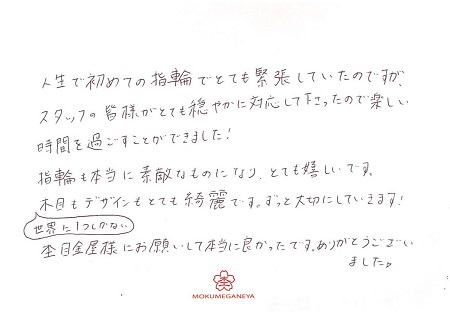 人生で初めての指輪でとても緊張していたのですが、
スタッフの皆様がとても穏やかに対応して下さったので楽しい
時間を過ごすことができました!
指輪も本当に素敵なものになり、とても嬉しいです。
木目もデザインもとても綺麗です。ずっと大切にしていきます!
世界に1つしかない
杢目金屋様にお願いして本当に良かったです。ありがとうござい
ました。
MOKUMEGANEYA